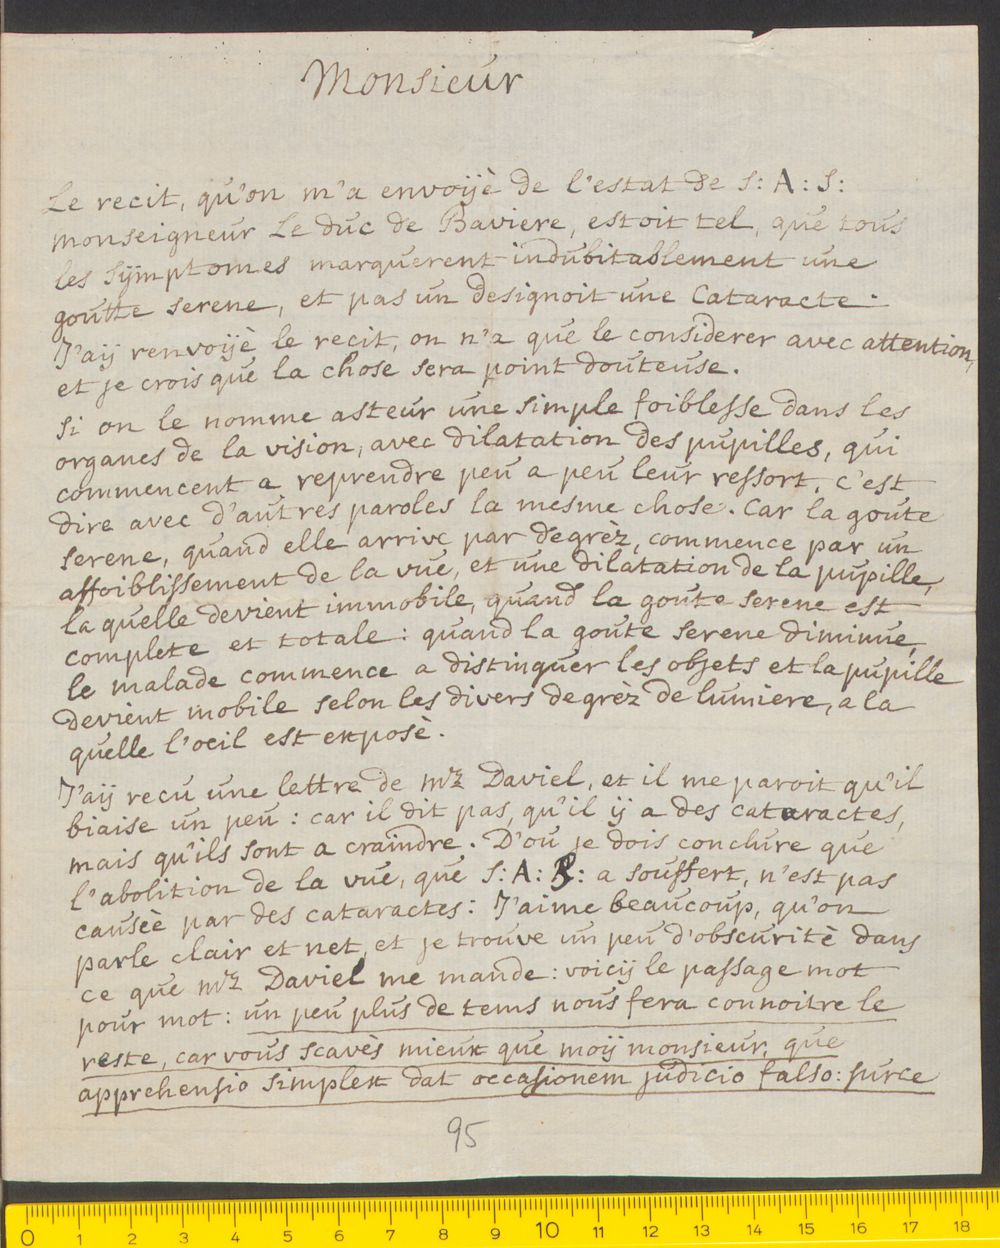 Monsieur
Le recit, qu'on m'a envoÿè de l'estat de S: A: S:
monseigneur Le duc de Baviere, estoit tel, que tous
les sÿmptomes marquerent indubitablement une
goutte serene, et pas un designoit une Cataracte.
J'aÿ renvoÿè le recit, on n'a que le considerer avec attention,
et je crois que la chose sera point douteuse.
si on le nomme asteur une simple foiblesse dans les
organes de la vision, avec dilatation des pupilles, qui
commencent a reprendre peu a peu leur ressort, c'est
dire avec d'autres paroles la mesme chose. Car la goute
serene, quand elle arrive par degrèz, commence par un
affoiblissement de la vue, et une dilatation de la pupille,
la quelle devient immobile, quand la goute serene est
complete et totale: quand la goute serene diminue,
le malade commence a distinguer les objets et la pupille
devient mobile selon les divers degrèz de lumiere, a la
quelle l'oeil est exposè.
J'aÿ recu une lettre de mr Daviel, et il me paroit qu'il
biaise un peu: car il dit pas, qu'il ÿ a des cataractes,
mais qu'ils sont a craindre. D'ou je dois conclure que
l'abolition de la vue, que S: A: R: a souffert, n'est pas
causèe par des cataractes: J'aime beaucoup, qu'on
parle clair et net, et je trouve un peu d'obscuritè dans
ce que mr Daviel me mande: voicÿ le passage mot
pour mot: un peu plus de tems nous fera connoitre le
reste, car vous scavès mieux que moÿ monsieur, que
apprehensio simplex dat occasionem judicio falso: surce
95
0 1 2 3 4 5 6 7 8 9 10 11 12 13 14 15 16 17 18